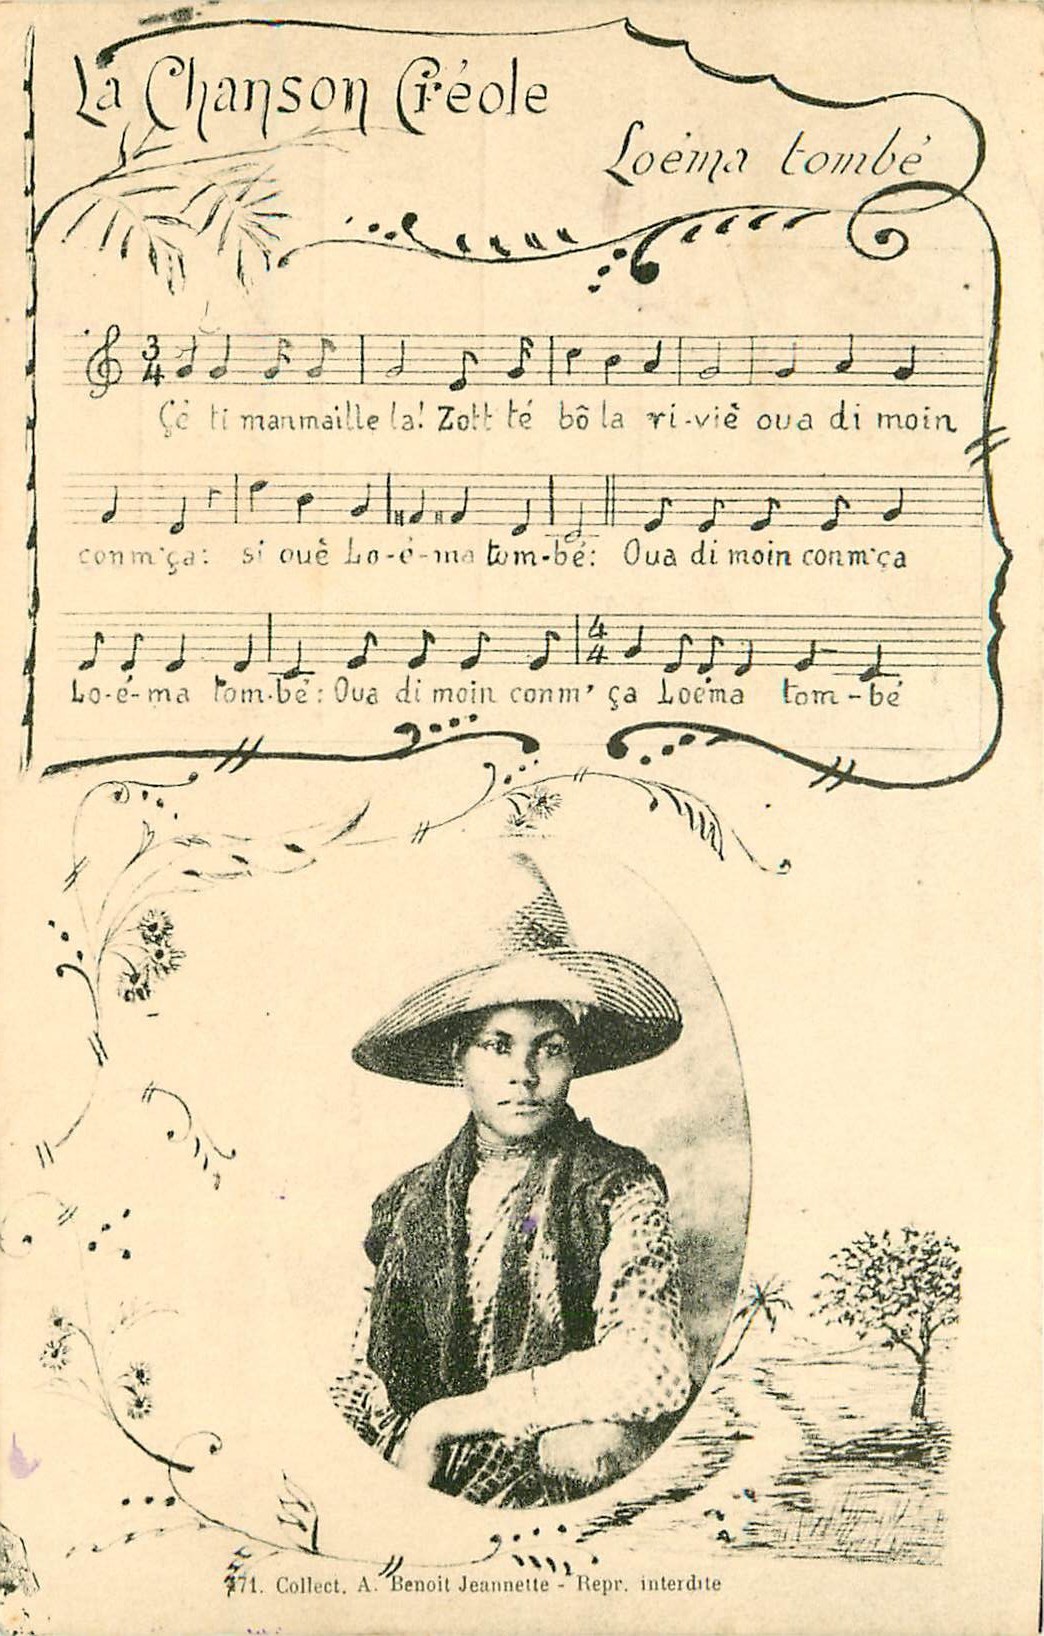 La Chanson Créole
Loéma tombé
3
4
Çé ti manmaille la! Zott té bô la ri-viè oua di moin
conm'ça: si ouè Lo-é-ma tom-bé: Oua di moin conm'ça
4
4
Lo-é-ma tom-bé: Oua di moin conm'ça Loéma tom-bé
471. Collect. A. Benoit Jeannette - Repr. interdite